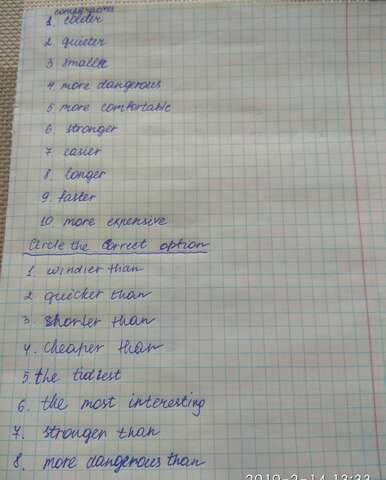 1. colder
2 quieter
3 smaller
4 more dangerous
5 more comfortable
6 stronger
7. easier
8. longer
9. faster
10. more expensive
Circle the correct option
1. windier than
2 quicker than
3 shorter than
4. cheaper than
5. the tidiest
6. the most interesting
7. stronger than
8. more dangerous than